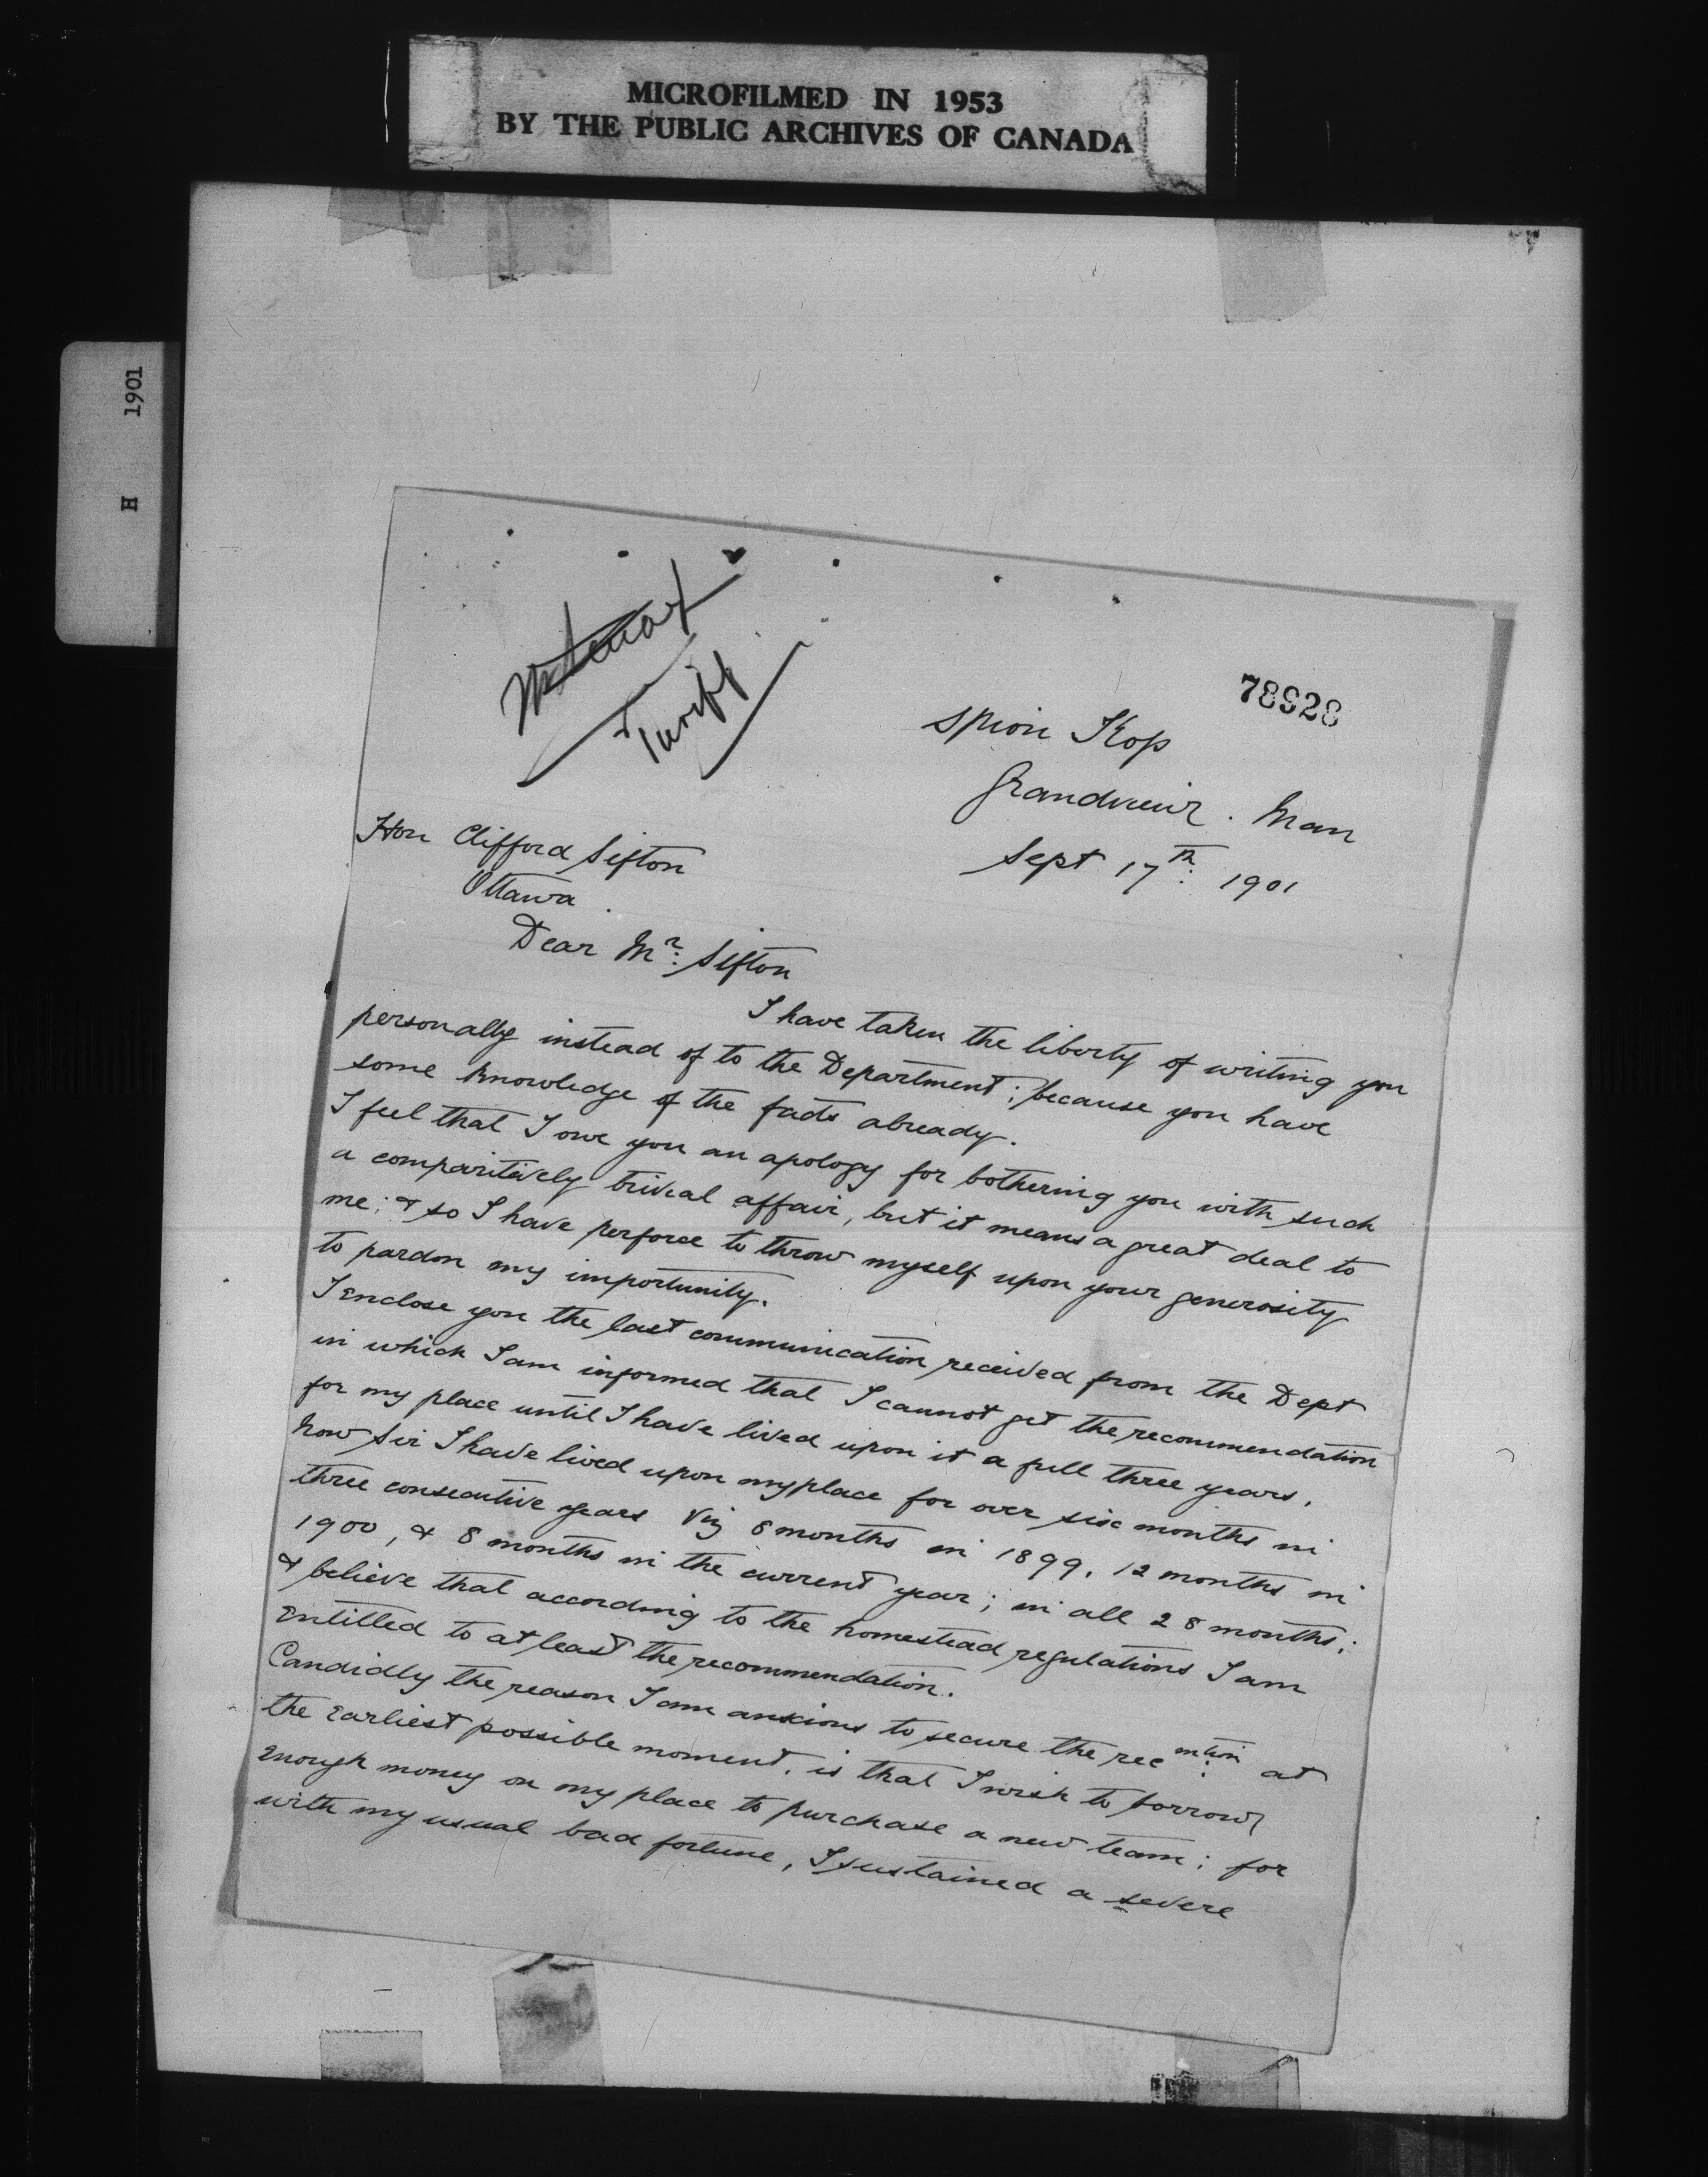 MICROFILMED IN 1953
BY THE PUBLIC ARCHIVES OF CANADA
H 1901
Turiff
78928
Spion Kop
Grandview. Man
Sept 17th: 1901
Hon Clifford Sifton
Ottawa.
Dear Mr: Sifton
I have taken the liberty of writing you
personally instead of to the Department; because you have
some knowledge of the facts already.
I feel that I owe you an apology for bothering you with such
a comparitively trivial affair, but it means a great deal to
me; & so I have perforce to throw myself upon your generosity
to pardon my importunity.
I enclose you the last communication received from the Dept
in which I am informed that I cannot get the recommendation
for my place until I have lived upon it a full three years.
Now Sir I have lived upon my place for over six months in
three consecutive years Viz 8 months in 1899, 12 months in
1900, & 8 months in the current year; in all 28 months;
& believe that according to the homestead regulations I am
entitled to at least the recommendation.
Candidly the reason I am anxious to secure the recmtion: at
the earliest possible moment, is that I wish to borrow
enough money on my place to purchase a new team; for
with my usual bad fortune, I sustained a severe